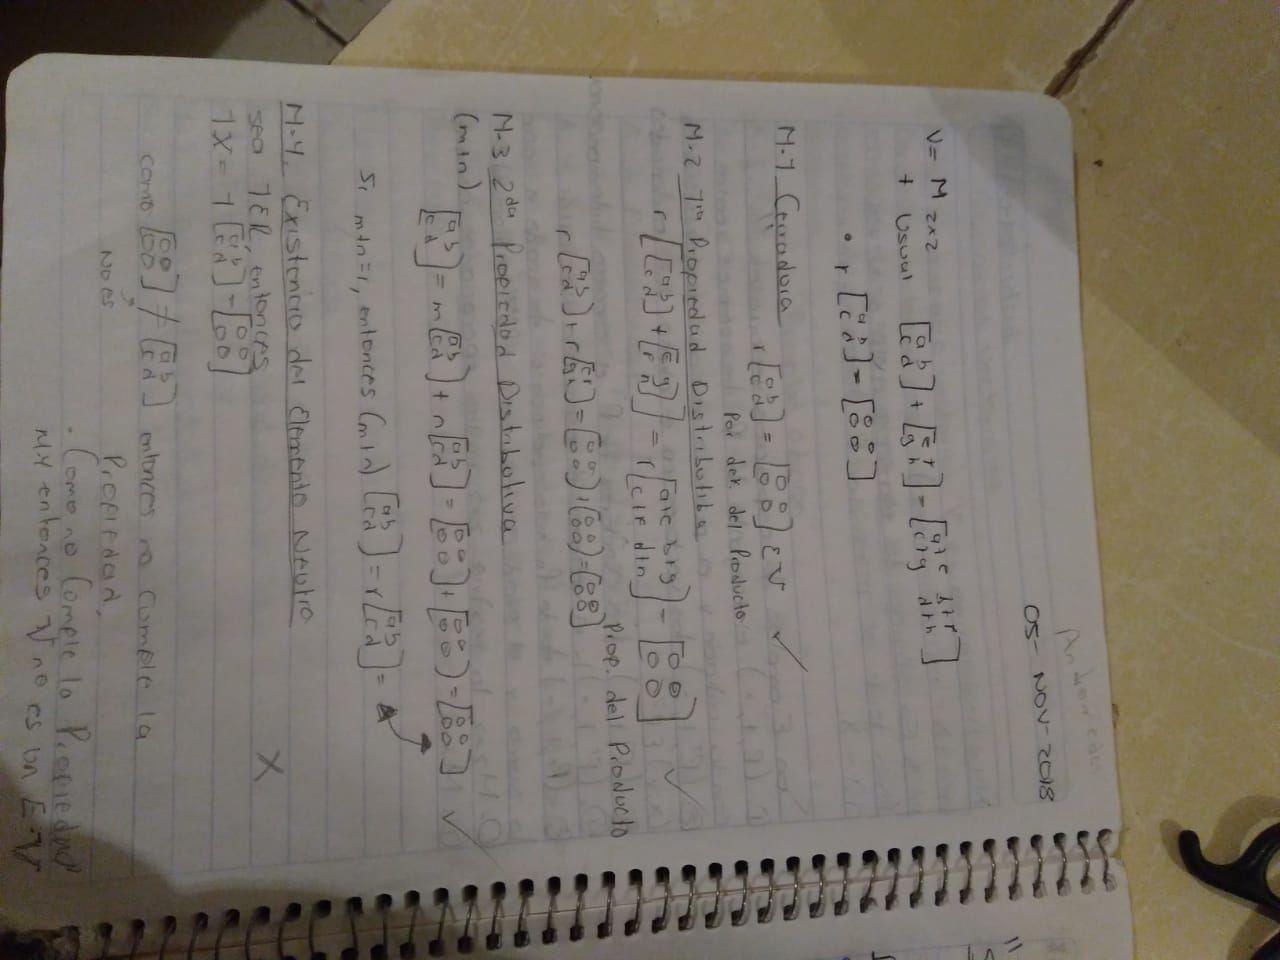 05- NOV-2018
V= M 2x2
+ Usual [a b / c d] + [e f / g h] = [a+e b+f / c+g d+h]
• r [a b / c d] = [0 0 / 0 0]
M.1 Cerradura
r [a b / c d] = [0 0 / 0 0] ε V ✓
Por def. del Producto
M.2 1ra Propiedad Distributiba
r [[a b / c d] + [e g / f h]] = r [a+e b+g / c+f d+h] = [0 0 / 0 0] ✓
Prop. del Producto
r [a b / c d] + r [e f / g h] = [0 0 / 0 0] + [0 0 / 0 0] = [0 0 / 0 0]
M.3 2da Propiedad Distributiva
(m+n) [a b / c d] = m [a b / c d] + n [a b / c d] = [0 0 / 0 0] + [0 0 / 0 0] = [0 0 / 0 0] ✓
Si m+n=r, entonces (m+n) [a b / c d] = r [a b / c d] =
M.4. Existencia del Elemento Neutro
sea 1εR, entonces X
1X = 1 [a b / c d] = [0 0 / 0 0]
como [0 0 / 0 0] ≠ [a b / c d] entonces no cumple la
No es
Propiedad.
. Como no Cumple la Propiedad
M.4 entonces V no es un E.V